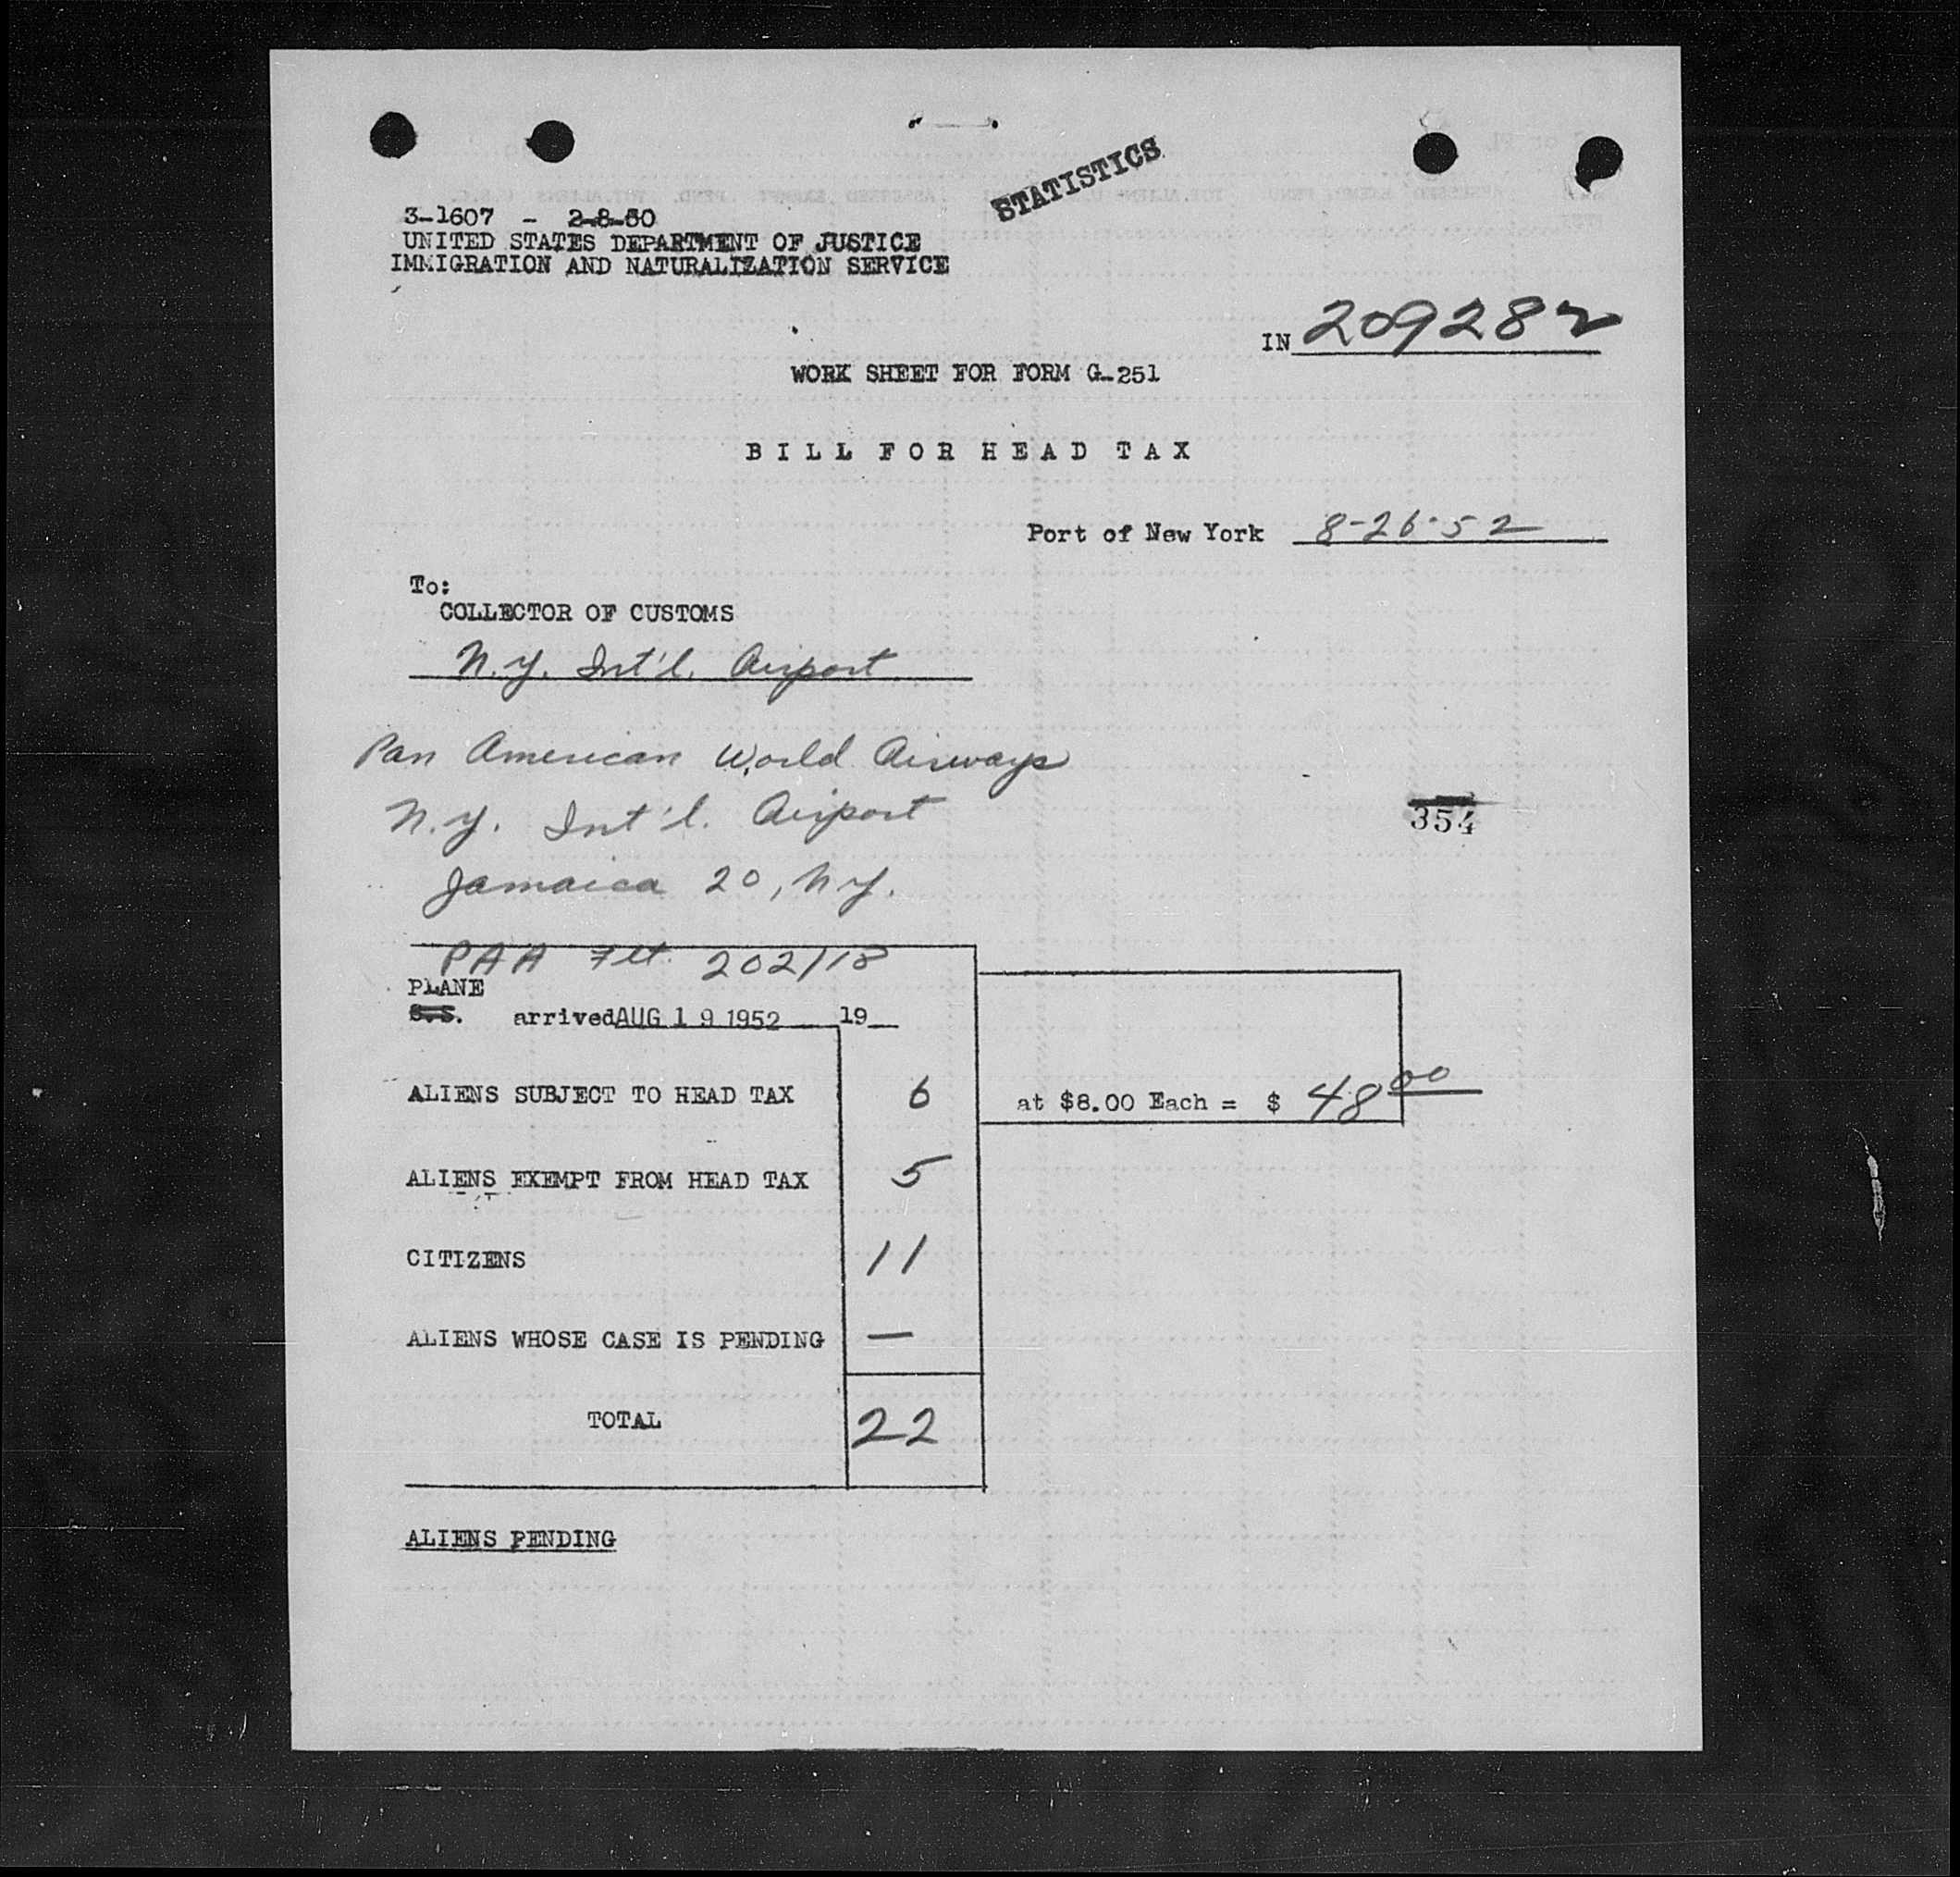 STATISTICS
3-1607 - 2-8-50
UNITED STATES DEPARTMENT OF JUSTICE
IMMIGRATION AND NATURALIZATION SERVICE
IN 209282
WORK SHEET FOR FORM G-251
BILL FOR HEAD TAX
Port of New York 8-26-52
To:
COLLECTOR OF CUSTOMS
N.Y. Int'l. Airport
Pan American World Airways
N.Y. Int'l. Airport
354
Jamaica 20, N.Y.
PAA Flt. 202/18
PLANE
S.S. arrived AUG 19 1952 19
ALIENS SUBJECT TO HEAD TAX 6 at $8.00 Each = $ 48 00
ALIENS EXEMPT FROM HEAD TAX 5
CITIZENS 11
ALIENS WHOSE CASE IS PENDING —
TOTAL 22
ALIENS PENDING